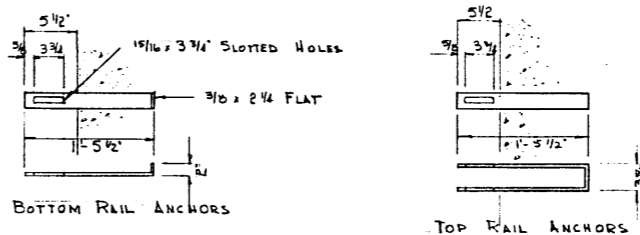 5 1/2"
5/8
3 3/4
15/16 x 3 3/4" SLOTTED HOLES
3/8 x 2 1/4 FLAT
1'- 5 1/2"
2"
BOTTOM RAIL ANCHORS
5 1/2
5/8
3 3/4
1'- 5 1/2"
TOP RAIL ANCHORS